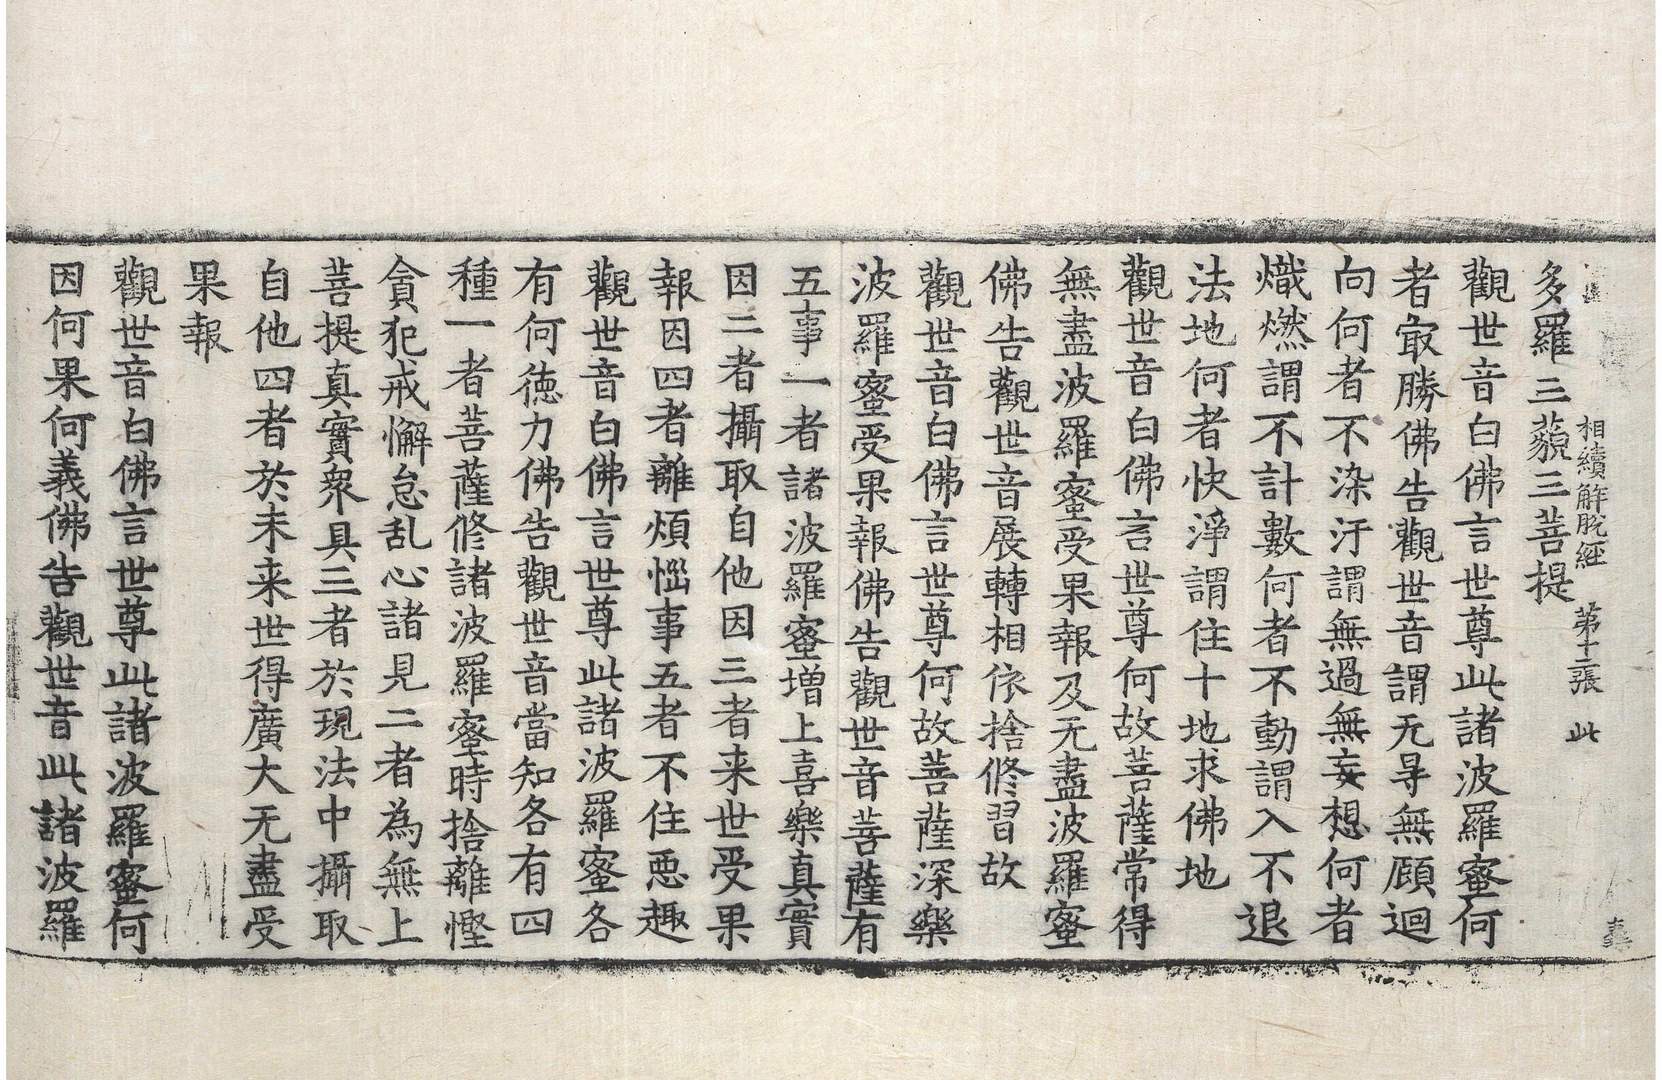 相續解脫經　第十二張　此
多羅三藐三菩提
觀世音白佛言世尊此諸波羅蜜何
者㝡勝佛告觀世音謂无㝵無顧迴
向何者不染汙謂無過無妄想何者
熾燃謂不計數何者不動謂入不退
法地何者快淨謂住十地求佛地
觀世音白佛言世尊何故菩薩常得
無盡波羅蜜受果報及无盡波羅蜜
佛告觀世音展轉相依捨修習故
觀世音白佛言世尊何故菩薩深樂
波羅蜜受果報佛告觀世音菩薩有
五事一者諸波羅蜜增上喜樂真實
因二者攝取自他因三者来世受果
報因四者離煩惱事五者不住惡趣
觀世音白佛言世尊此諸波羅蜜各
有何德力佛告觀世音當知各有四
種一者菩薩修諸波羅蜜時捨離慳
貪犯戒懈怠乱心諸見二者為無上
菩提真實衆具三者於現法中攝取
自他四者於未来世得廣大无盡受
果報
觀世音白佛言世尊此諸波羅蜜何
因何果何義佛告觀世音此諸波羅